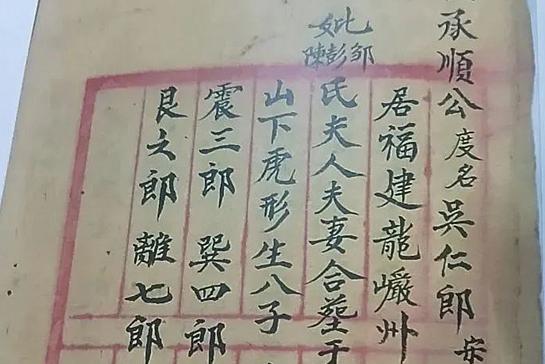 承順公 度名 吳仁郎
居福建龍巖州
妣
邹彭陳
氏夫人夫妻合塟于
山下虎形生八子
震三郎 巽四郎
艮之郎 離七郎